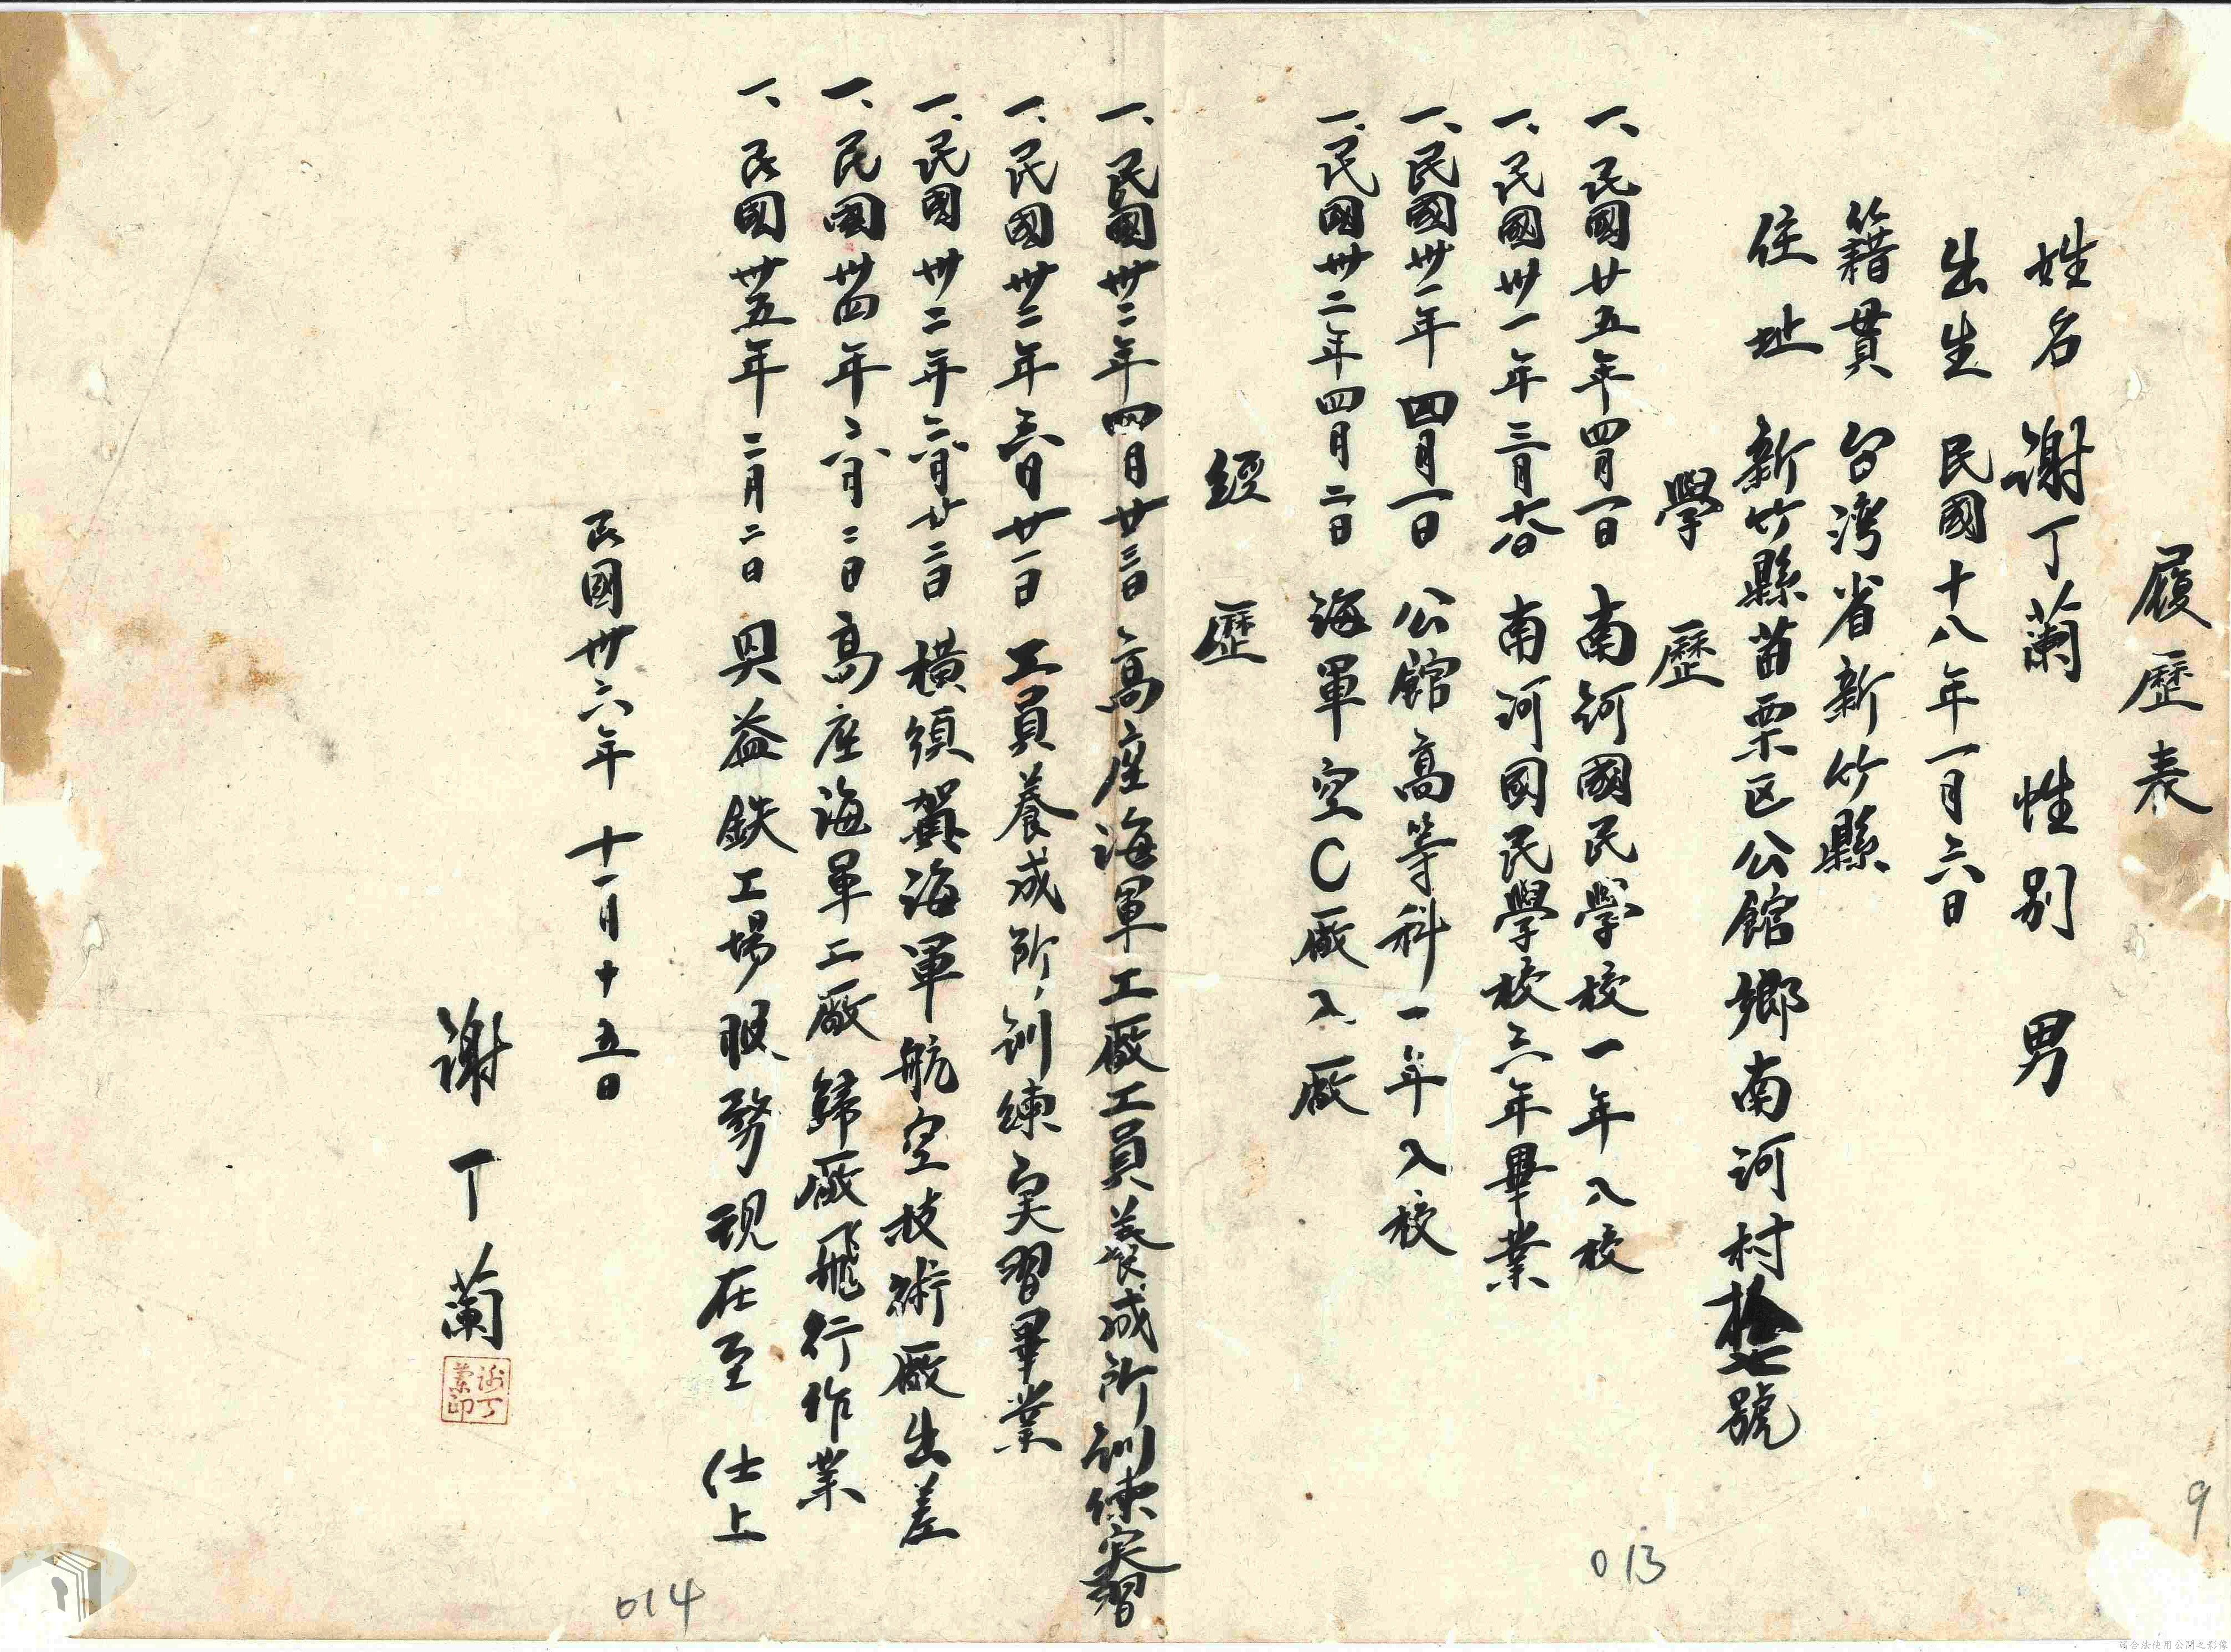 履歷表
姓名 謝丁蘭 性別 男
出生 民國十八年一月六日
籍貫 台湾省新竹縣
住址 新竹縣苗栗区公館鄉南河村拾七號
學歷
一、民國廿五年四月一日 南河國民學校一年入校
一、民國卅一年三月廿八日 南河國民學校六年畢業
一、民國卅一年四月一日 公館高等科一年入校
一、民國卅二年四月二日 海軍空C廠入廠
經歷
一、民國卅二年四月廿三日 高座海軍工廠工員養成所訓練実習
一、民國卅二年六月廿一日 工員養成所訓練実習畢業
一、民國卅二年六月廿二日 横須賀海軍航空技術廠出差
一、民國卅四年六月二日 高座海軍工廠歸廠飛行作業
一、民國卅五年二月二日 興益鉄工場服務現在至 仕上
民國卅六年 十一月十五日
謝丁蘭
謝丁蘭印
9
013
014
請合法使用公開之影像